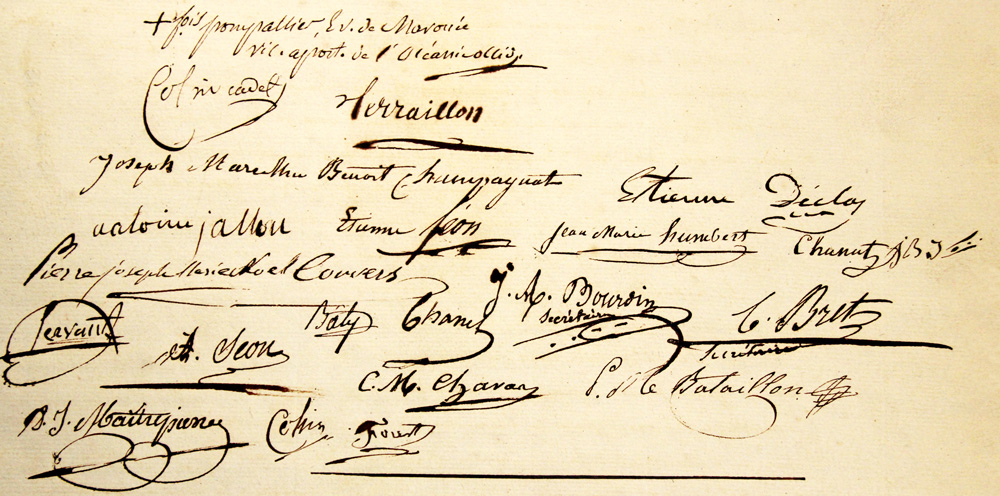 + fois pompallier, Ev. de Maronée
vic. apost. de l'Océanie occid.
Colin cadet
Terraillon
Joseph Marcellin Benoit Champagnat
Etienne Déclas
antoine jallon Etienne Séon Jean Marie humbert Chanut J B J
Pierre joseph Marie Noel Convers
Servant Baty Chanel J. M. Bourdin
Secrétaire
C. Bret
Secrétaire
A. Séon
C. M. Chavas P. Me Bataillon
D. J. Maîtrepierre Colin Forest